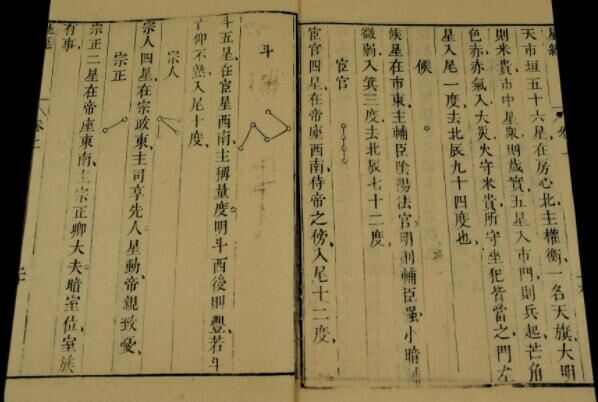 星經
天市垣五十六星在房心北主權衡一名天旗大明
則米貴市中星衆則歲實五星入市門則兵起芒角
色赤赤氣入大災火守米貴所守坐犯皆當之門左
星入尾一度去北辰九十四度也
候
候星在市東主輔臣陰陽法官明則輔臣强小暗則
微弱入箕三度去北辰七十二度
宦官
宦官四星在帝座西南侍帝之傍入尾十二度
斗
斗五星在宦星西南主稱量度明斗西後則豐若斗
仰不熟入尾十度
宗人
宗人四星在宗政東主司享先人星動帝親致憂
宗正
宗正二星在帝座東南主宗正卿大夫暗室位室族
有事